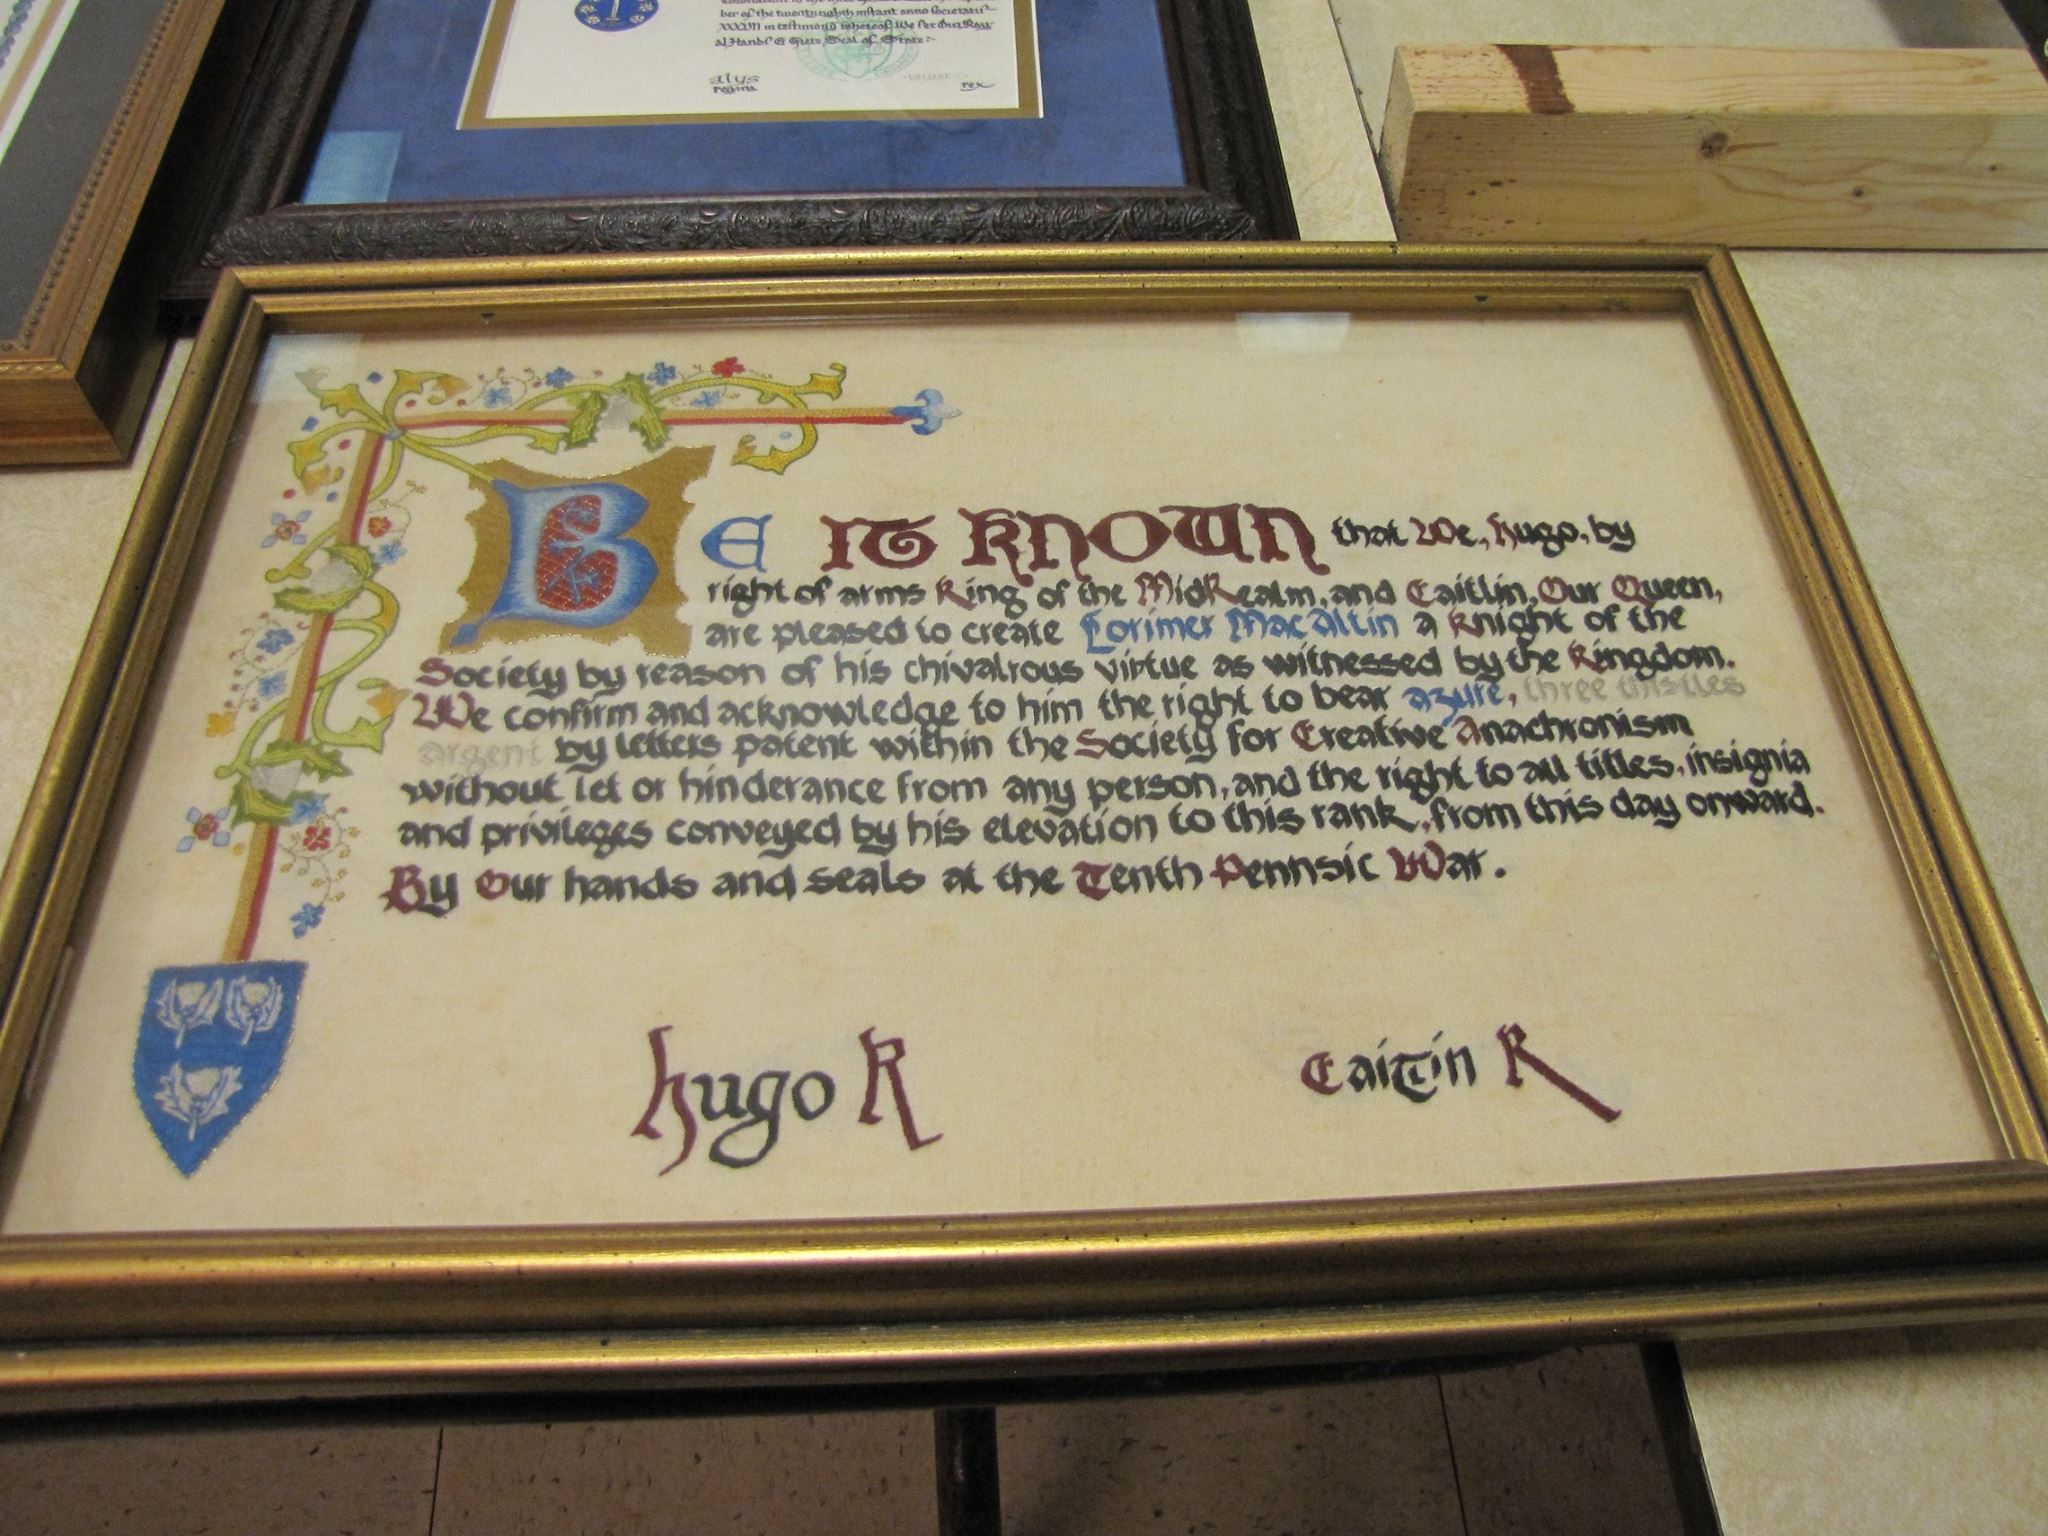 ber of the twenty eighth instant anno societatis
XXXVII in testimony whereof We set Our Roy-
al Hands & Grete Seal of State:-
alys
regina
rex
BE IT KNOWN that We, Hugo, by
right of arms King of the MidRealm, and Caitlin, Our Queen,
are pleased to create Lorimer MacAltin a knight of the
Society by reason of his chivalrous virtue as witnessed by the Kingdom.
We confirm and acknowledge to him the right to bear azure, three thistles
argent by letters patent within the Society for Creative Anachronism
without let or hinderance from any person, and the right to all titles, insignia
and privileges conveyed by his elevation to this rank, from this day onward.
By Our hands and seals at the Tenth Pennsic War.
Hugo R
Caitlin R